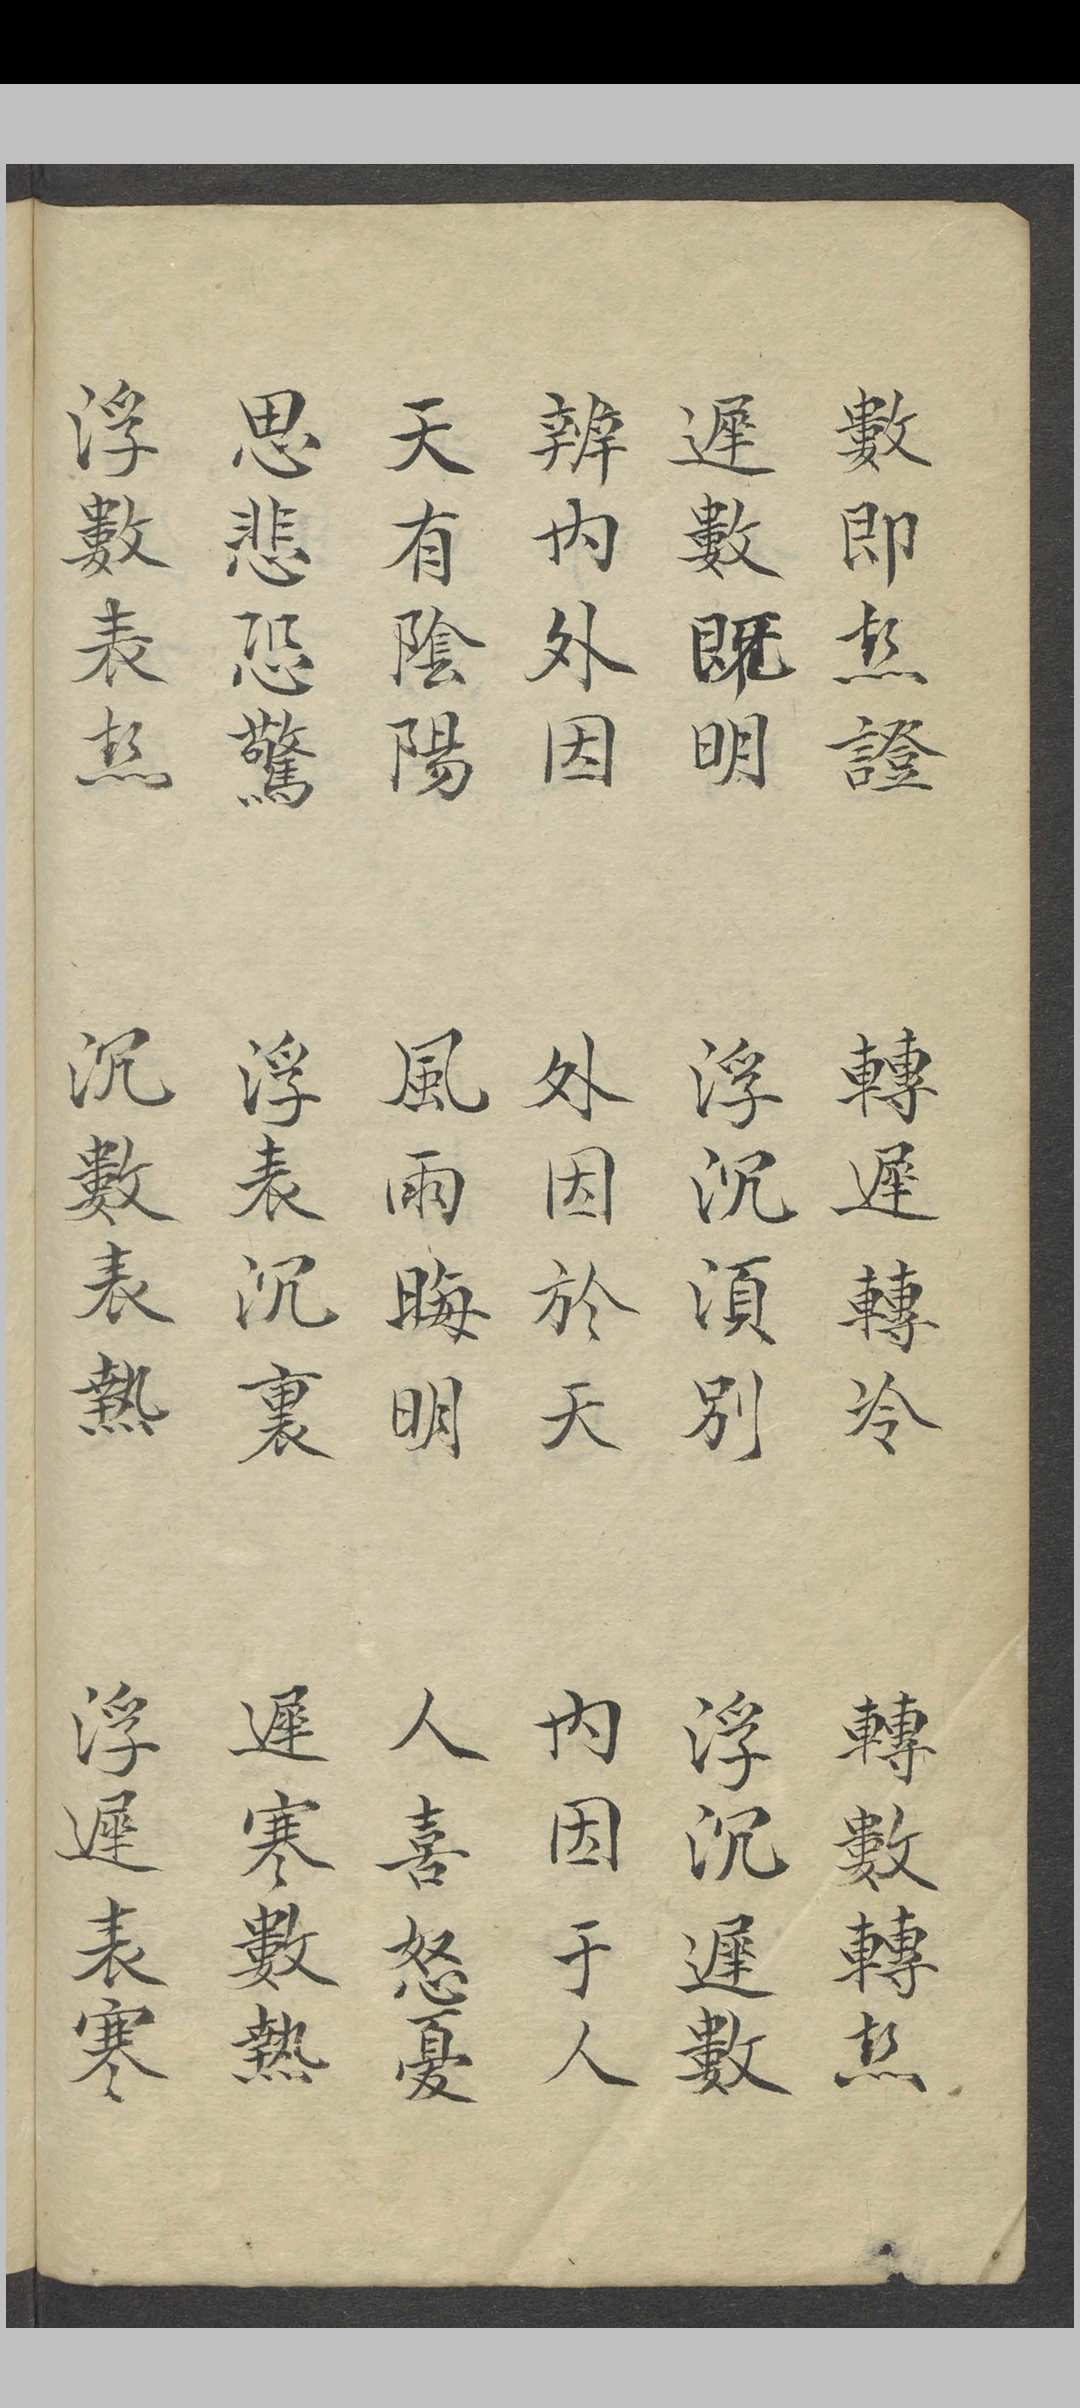 數即𤍠證　轉遲轉冷　轉數轉𤍠
遲數既明　浮沉湏別　浮沉遲數
辨内外因　外因於天　内因于人
天有陰陽　風雨晦明　人喜怒憂
思悲恐驚　浮表沉裏　遲寒數熱
浮數表𤍠　沉數表熱　浮遲表寒